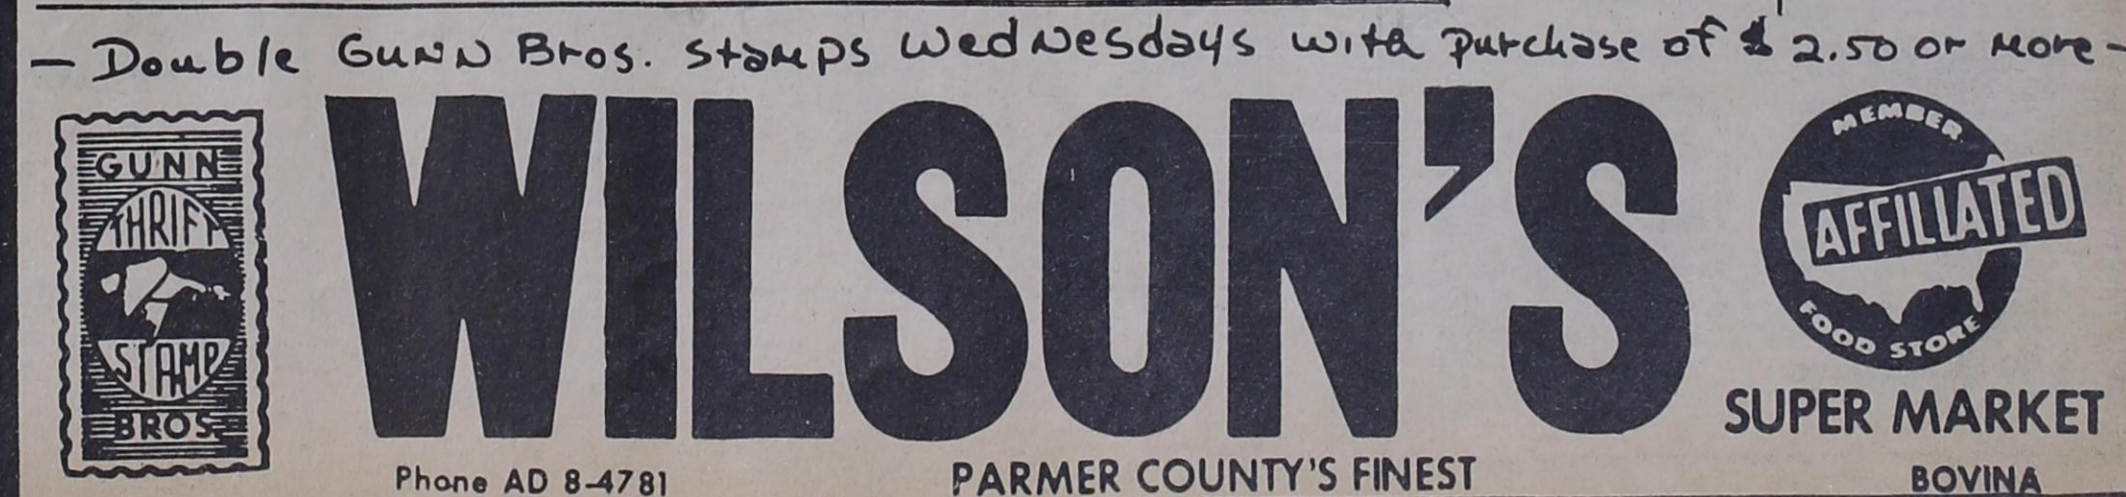 — Double Gunn Bros. stamps Wednesdays with purchase of $2.50 or more -
GUNN
THRIFT
STAMP
BROS.
WILSON'S
MEMBER
AFFILIATED
FOOD STORE
SUPER MARKET
Phone AD 8-4781
PARMER COUNTY'S FINEST
BOVINA